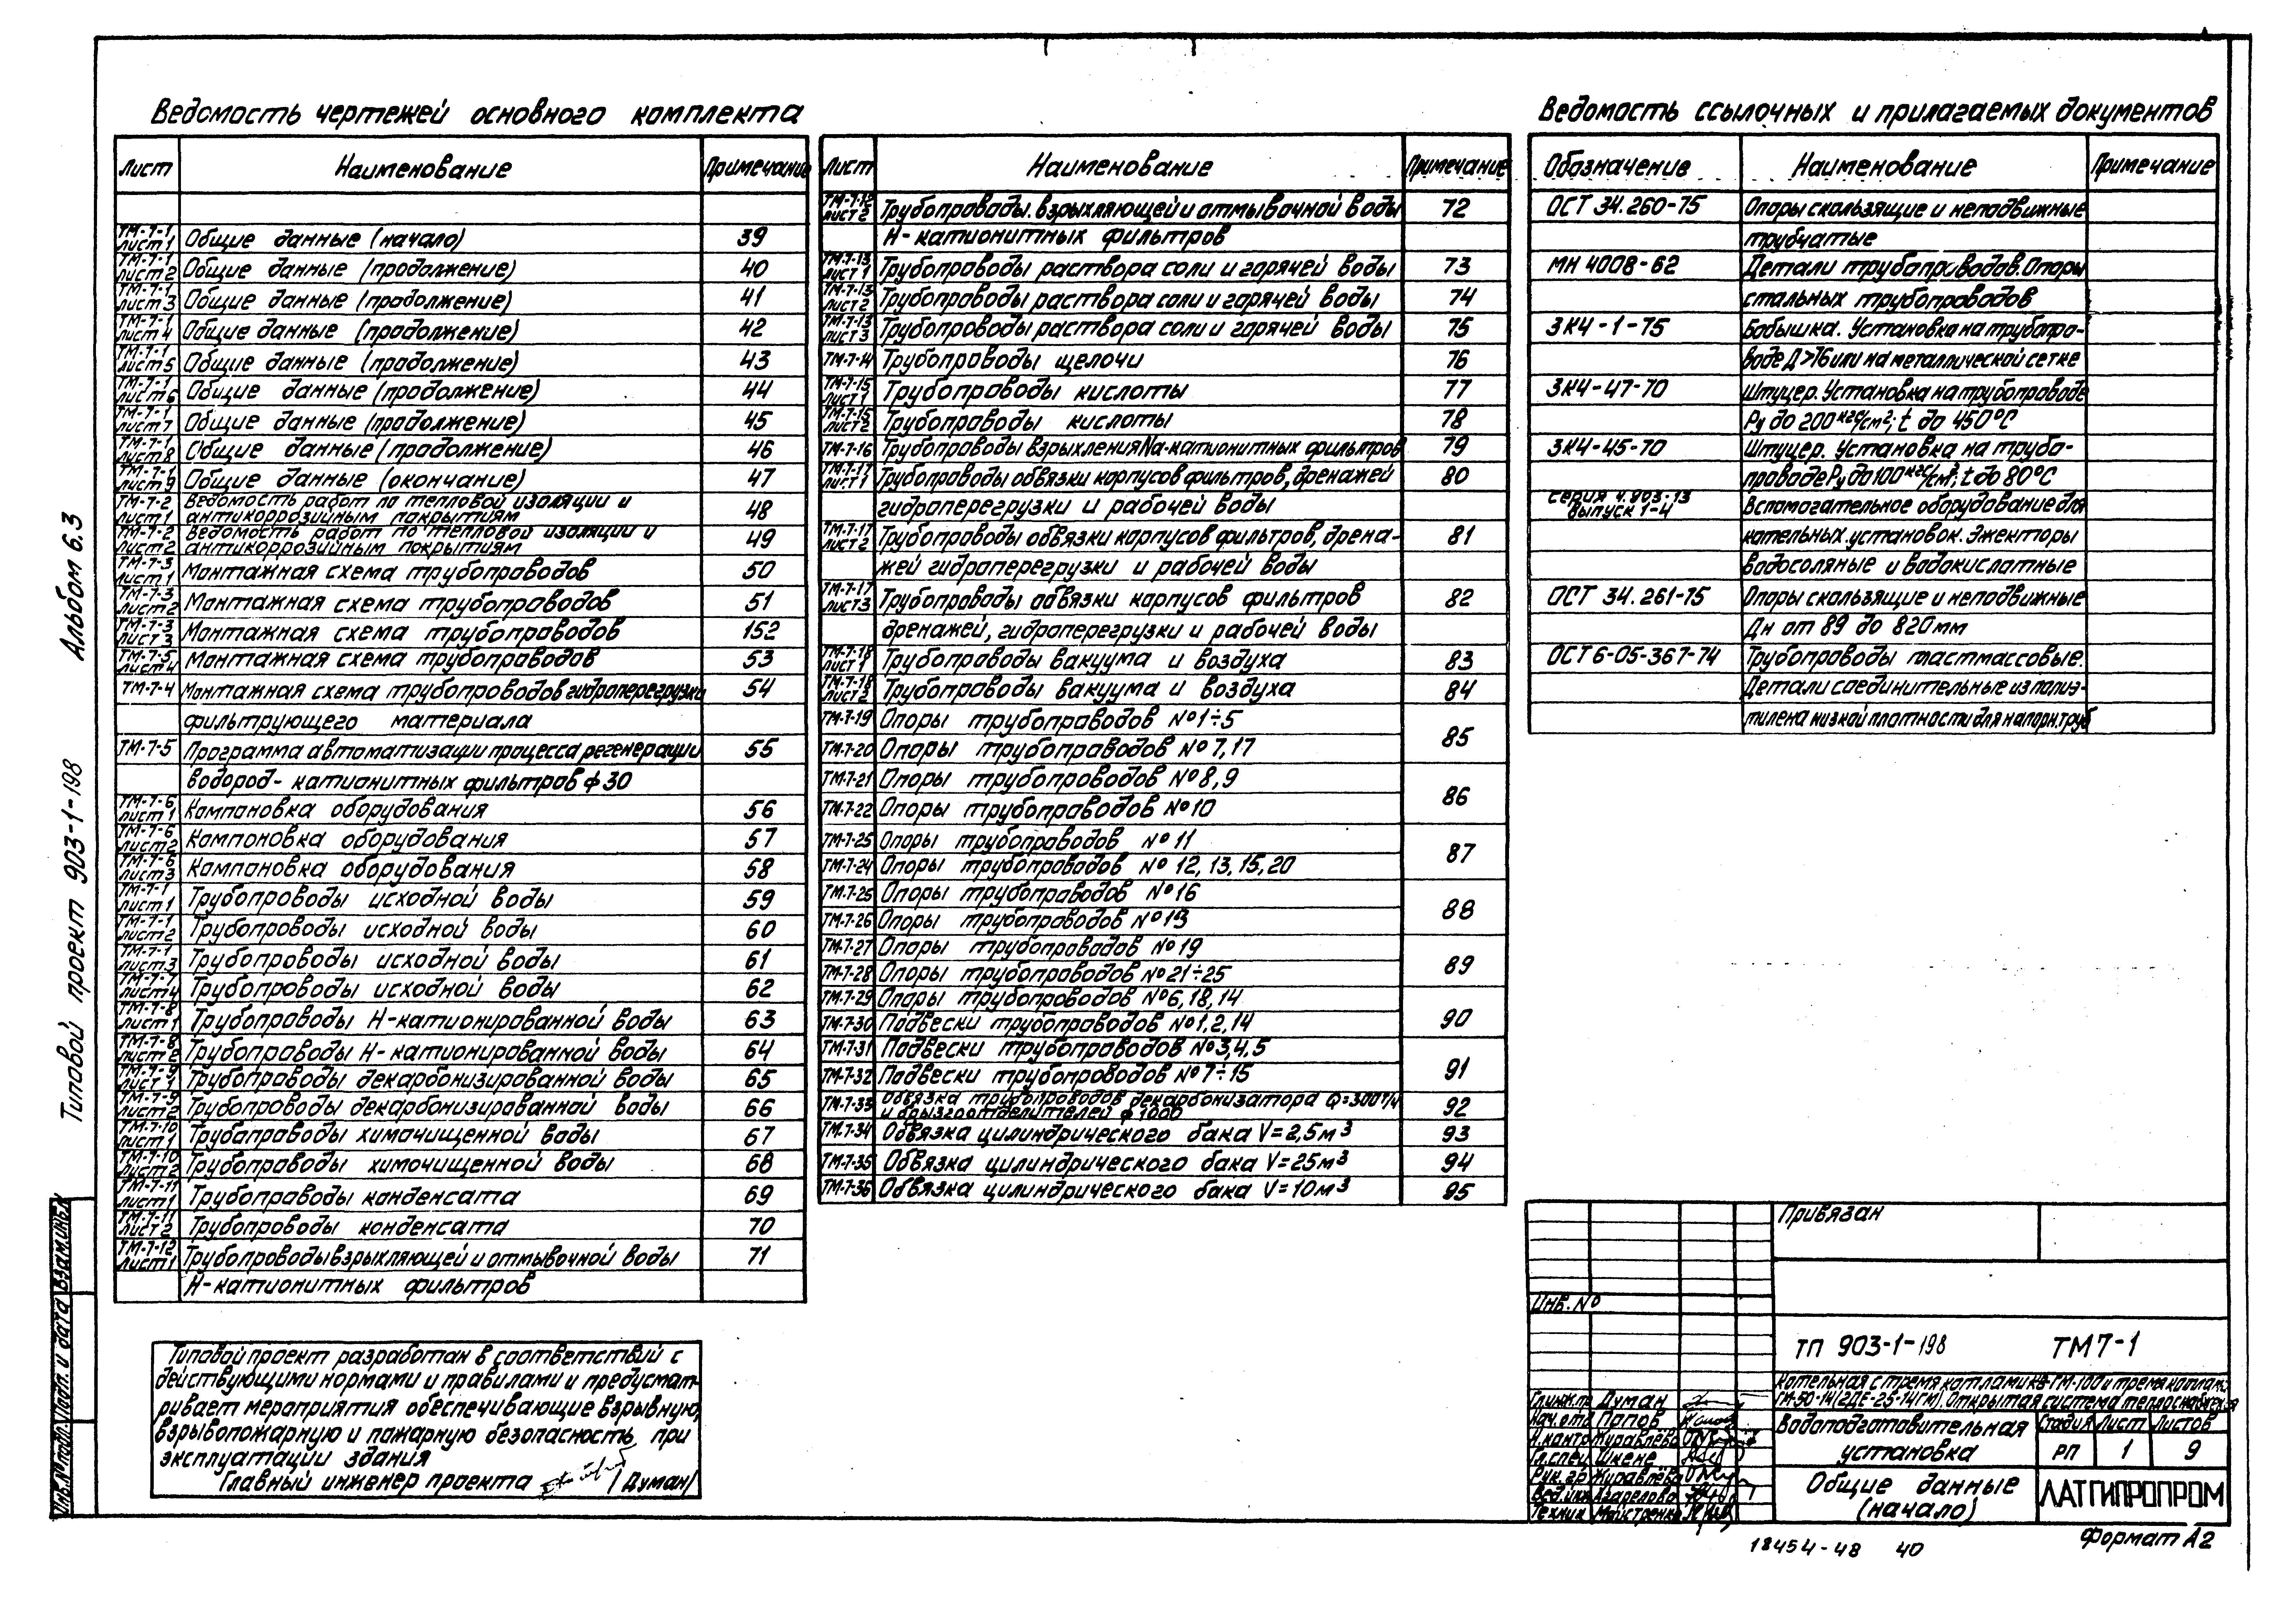 Ведомость чертежей основного комплекта
Лист Наименование Примечание
ТМ-7-1 лист 1 Общие данные (начало) 39
ТМ-7-1 лист 2 Общие данные (продолжение) 40
ТМ-7-1 лист 3 Общие данные (продолжение) 41
ТМ-7-1 лист 4 Общие данные (продолжение) 42
ТМ-7-1 лист 5 Общие данные (продолжение) 43
ТМ-7-1 лист 6 Общие данные (продолжение) 44
ТМ-7-1 лист 7 Общие данные (продолжение) 45
ТМ-7-1 лист 8 Общие данные (продолжение) 46
ТМ-7-1 лист 9 Общие данные (окончание) 47
ТМ-7-2 лист 1 Ведомость работ по тепловой изоляции и антикоррозийным покрытиям 48
ТМ-7-2 лист 2 Ведомость работ по тепловой изоляции и антикоррозийным покрытиям 49
ТМ-7-3 лист 1 Монтажная схема трубопроводов 50
ТМ-7-3 лист 2 Монтажная схема трубопроводов 51
ТМ-7-3 лист 3 Монтажная схема трубопроводов 152
ТМ-7-5 лист 4 Монтажная схема трубопроводов 53
ТМ-7-4 Монтажная схема трубопроводов гидроперегрузки 54
фильтрующего материала
ТМ-7-5 Программа автоматизации процесса регенерации 55
водород-катионитных фильтров ф 30
ТМ-7-6 лист 1 Компоновка оборудования 56
ТМ-7-6 лист 2 Компоновка оборудования 57
ТМ-7-6 лист 3 Компоновка оборудования 58
ТМ-7-1 лист 1 Трубопроводы исходной воды 59
ТМ-7-1 лист 2 Трубопроводы исходной воды 60
ТМ-7-1 лист 3 Трубопроводы исходной воды 61
ТМ-7-7 лист 4 Трубопроводы исходной воды 62
ТМ-7-8 лист 1 Трубопроводы Н-катионированной воды 63
ТМ-7-8 лист 2 Трубопроводы Н-катионированной воды 64
ТМ-7-9 лист 1 Трубопроводы декарбонизированной воды 65
ТМ-7-9 лист 2 Трубопроводы декарбонизированной воды 66
ТМ-7-10 лист 1 Трубопроводы химочищенной воды 67
ТМ-7-10 лист 2 Трубопроводы химочищенной воды 68
ТМ-7-11 лист 1 Трубопроводы конденсата 69
ТМ-7-11 лист 2 Трубопроводы конденсата 70
ТМ-7-12 лист 1 Трубопроводы взрыхляющей и отмывочной воды 71
Н-катионитных фильтров
Лист Наименование Примечание
ТМ-7-12 лист 2 Трубопроводы взрыхляющей и отмывочной воды 72
Н-катионитных фильтров
ТМ-7-13 лист 1 Трубопроводы раствора соли и горячей воды 73
ТМ-7-13 лист 2 Трубопроводы раствора соли и горячей воды 74
ТМ-7-13 лист 3 Трубопроводы раствора соли и горячей воды 75
ТМ-7-14 Трубопроводы щелочи 76
ТМ-7-15 лист 1 Трубопроводы кислоты 77
ТМ-7-15 лист 2 Трубопроводы кислоты 78
ТМ-7-16 Трубопроводы взрыхления Na-катионитных фильтров 79
ТМ-7-17 лист 1 Трубопроводы обвязки корпусов фильтров, дренажей 80
гидроперегрузки и рабочей воды
ТМ-7-17 лист 2 Трубопроводы обвязки корпусов фильтров, дрена- 81
жей гидроперегрузки и рабочей воды
ТМ-7-17 лист 3 Трубопроводы обвязки корпусов фильтров 82
дренажей, гидроперегрузки и рабочей воды
ТМ-7-18 лист 1 Трубопроводы вакуума и воздуха 83
ТМ-7-18 лист 2 Трубопроводы вакуума и воздуха 84
ТМ-7-19 Опоры трубопроводов №1÷5
85
ТМ-7-20 Опоры трубопроводов №7,17
ТМ-7-21 Опоры трубопроводов №8,9
86
ТМ-7-22 Опоры трубопроводов №10
ТМ-7-25 Опоры трубопроводов №11
87
ТМ-7-24 Опоры трубопроводов №12,13,15,20
ТМ-7-25 Опоры трубопроводов №16
88
ТМ-7-26 Опоры трубопроводов №13
ТМ-7-27 Опоры трубопроводов №19
89
ТМ-7-28 Опоры трубопроводов №21÷25
ТМ-7-29 Опоры трубопроводов №6,18,14
90
ТМ-7-30 Подвески трубопроводов №1,2,14
ТМ-7-31 Подвески трубопроводов №3,4,5
91
ТМ-7-32 Подвески трубопроводов №7÷15
ТМ-7-33 Обвязка трубопроводов декарбонизатора Q=300т/ч и брызгоотделителей ф 1000 92
ТМ-7-34 Обвязка цилиндрического бака V=2,5м³ 93
ТМ-7-35 Обвязка цилиндрического бака V=25м³ 94
ТМ-7-36 Обвязка цилиндрического бака V=10м³ 95
Ведомость ссылочных и прилагаемых документов
Обозначение Наименование Примечание
ОСТ 34.260-75 Опоры скользящие и неподвижные
трубчатые
МН 4008-62 Детали трубопроводов. Опоры
стальных трубопроводов
ЗК4-1-75 Бобышка. Установка на трубопро-
воде Д>76 или на металлической сетке
ЗК4-47-70 Штуцер. Установка на трубопроводе
Ру до 200 кгс/см²; t до 450°С
ЗК4-45-70 Штуцер. Установка на трубо-
проводе Ру до 100 кгс/см²; t до 80°С
Серия 4.903-13 выпуск 1-4 Вспомогательное оборудование для
котельных установок. Эжекторы
водосоляные и водокислотные
ОСТ 34.261-75 Опоры скользящие и неподвижные
Дн от 89 до 820мм
ОСТ6-05-367-74 Трубопроводы пастмассовые.
Детали соединительные из полиэ-
тилена низкой плотности для напорн. труб
Типовой проект 903-1-198 Альбом 6.3
Инв.№ подл. Подп. и дата Взам.инв.№
Типовой проект разработан в соответствий с
действующими нормами и правилами и предусмат-
ривает мероприятия обеспечивающие взрывную,
взрывопожарную и пожарную безопасность при
эксплуатации здания
Главный инженер проекта /Думан/
Привязан
Инв.№
ТП 903-1-198 ТМ7-1
Котельная с тремя котлами КВ-ГМ-100 и тремя котлами
ГМ-50-14(2ДЕ-25-14ГМ). Открытая система теплоснабжения
Гл.инж.пр Думан
Нач.отд Попов
Н.контр Журавлёва
Гл.спец Шкене
Рук.гр. Журавлёва
Вед.инж Азарелова
Техник
Водоподготовительная
установка
Стадия Лист Листов
РП 1 9
Общие данные
(начало)
ЛАТГИПРОПРОМ
Формат А2
18454-48 40